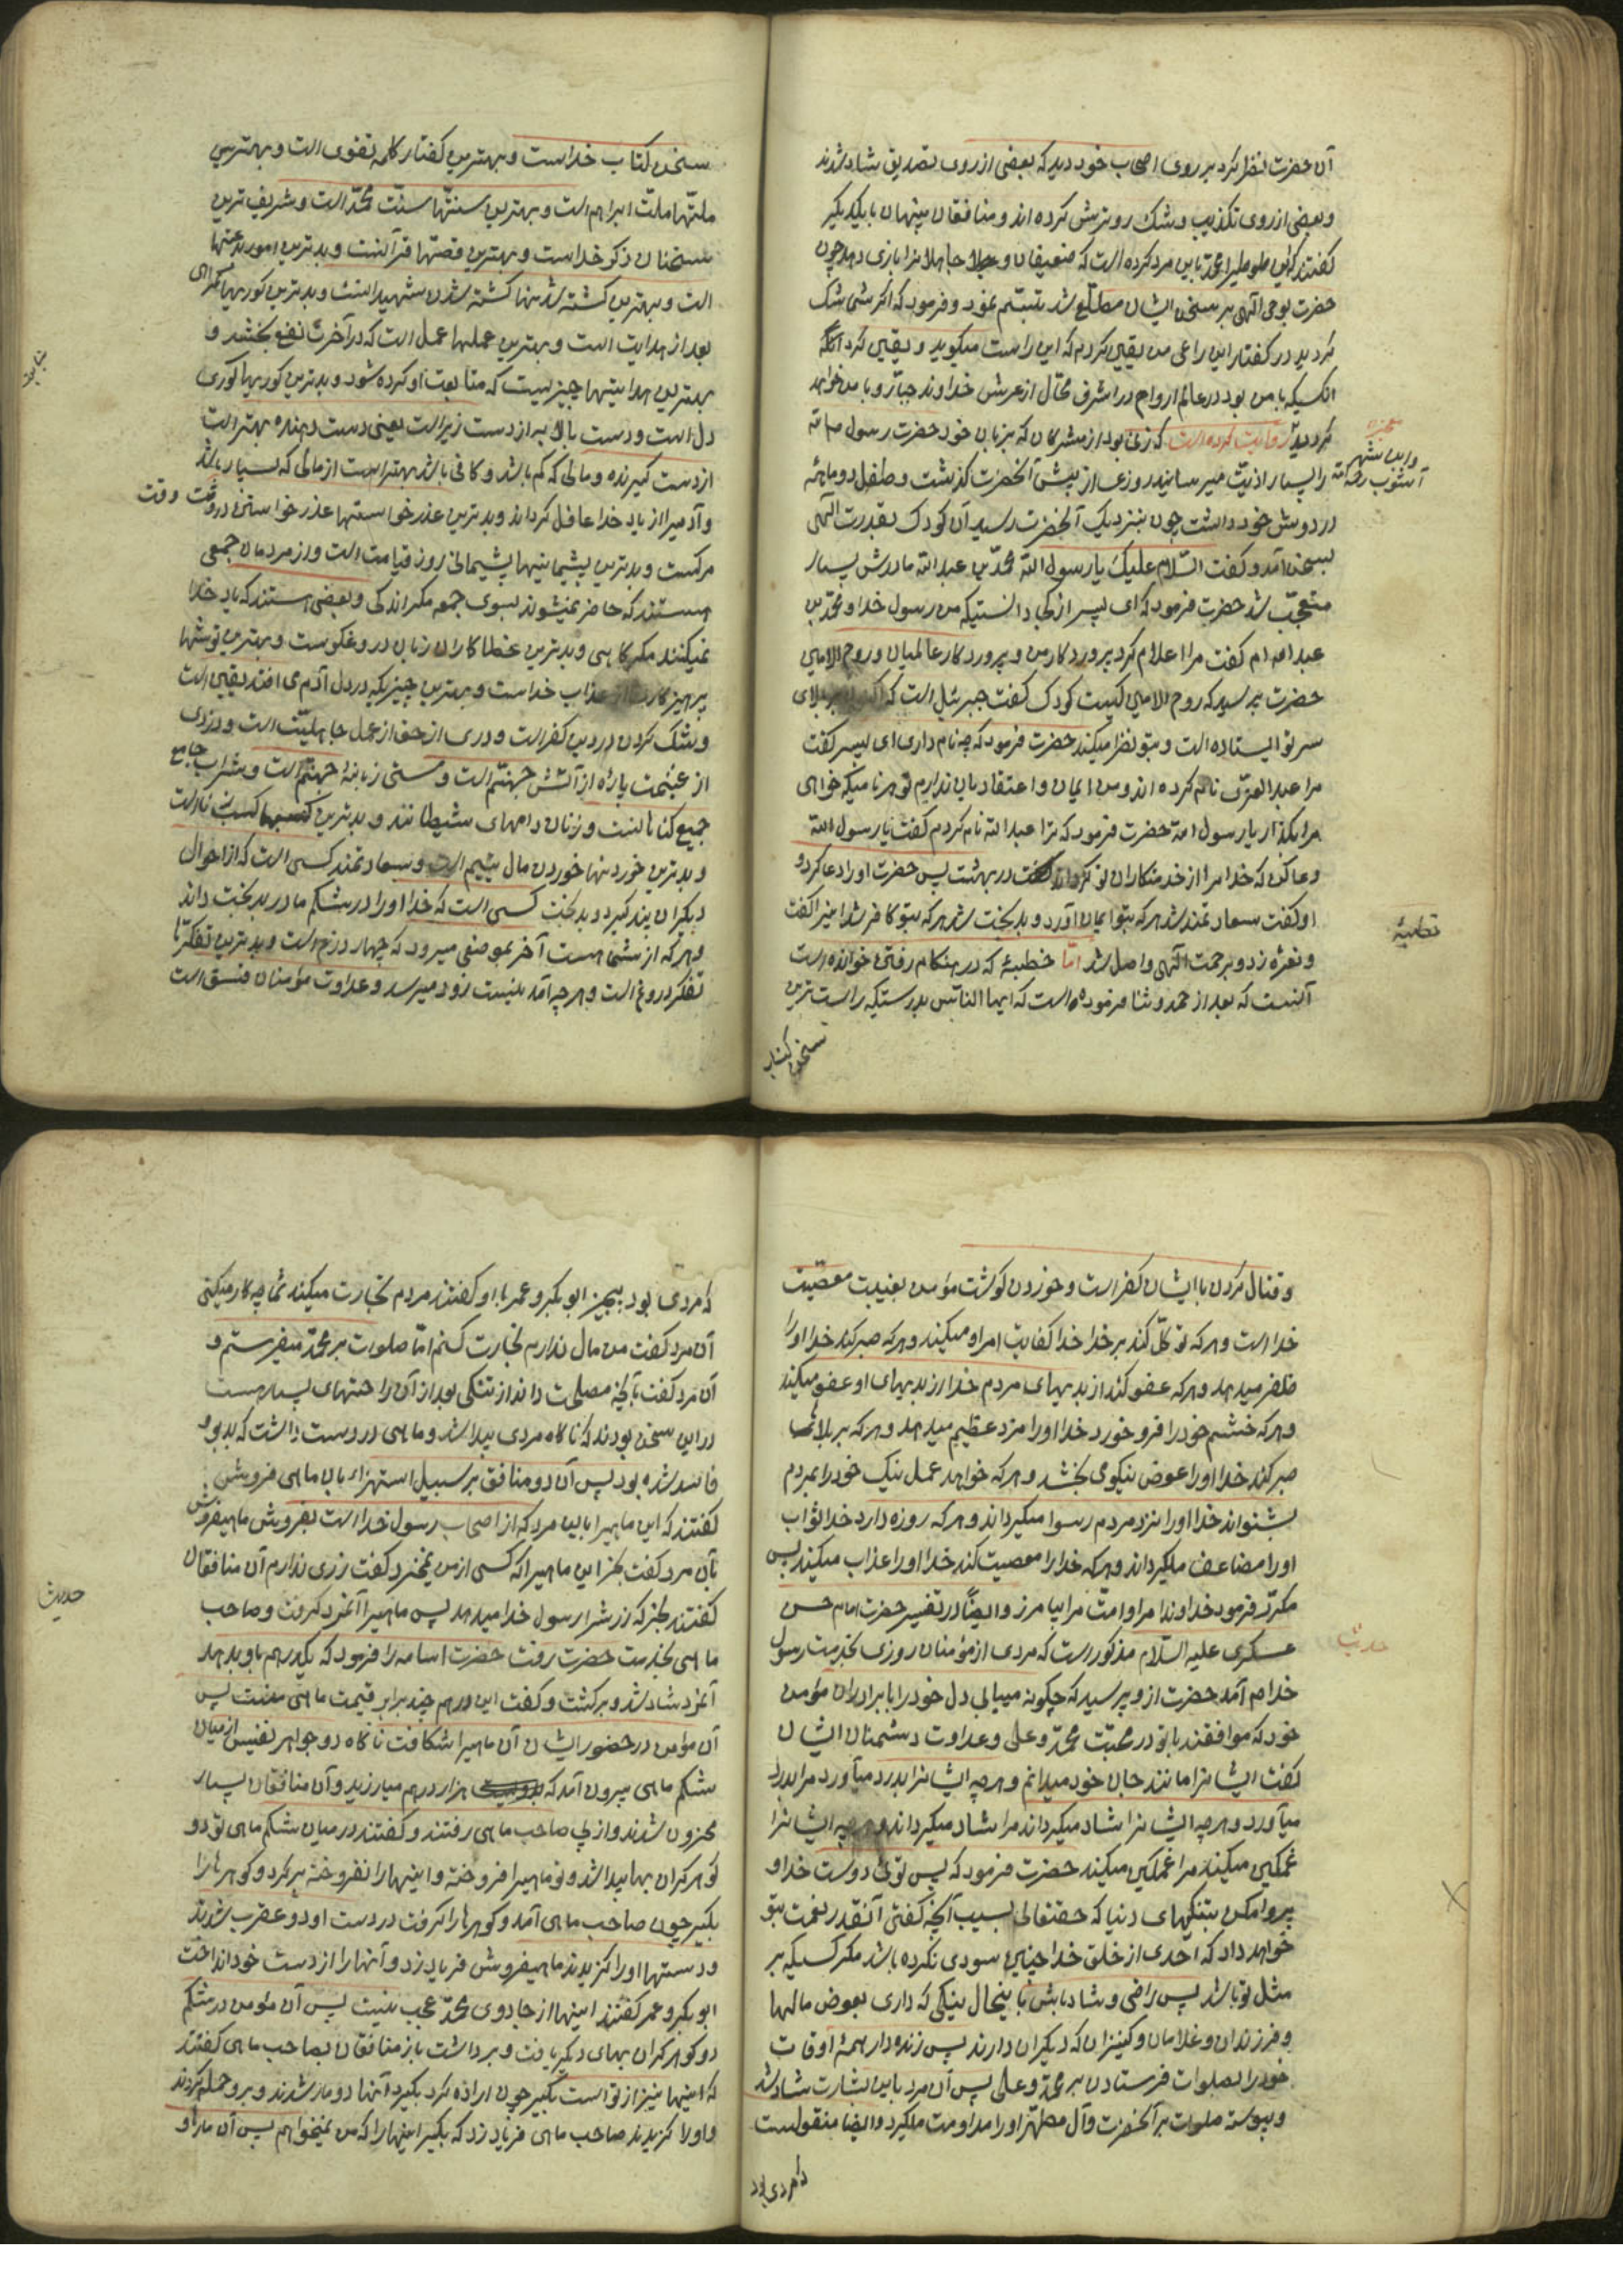 آن حضرت نظر کرد بر روی اصحاب خود دید که بعضی از روی تصدیق شاد شدند
و بعضی از روی تکذیب و شک رو ترش کرده اند و منافقان پنهان با یکدیگر
گفتند که این محمد با این مرد کرده است که ضعیفان و جاهلانرا بازی دهد چون
حضرت بوحی الهی بر سخن ایشان مطلع شد تبسم نمود و فرمود که اگر شما شک
کردید در گفتار این راعی من یقین کردم که این راست میگوید و یقین کرد آنکه
آنکسیکه با من بود در عالم ارواح در اشرف محال از عرش خداوند جبار و با من خواهد
گردید روایت کرده است که زنی بود از مشرکان که بزبان خود حضرت رسول صلی الله
معجزه
را بسیار اذیت میرسانید روزی از پیش آنحضرت گذشت و طفل دو ماهه
در دوش خود داشت چون بنزدیک آنحضرت رسید آن کودک بقدرت الهی
بسخن آمد و گفت السلام علیک یا رسول الله محمد بن عبد الله مادرش بسیار
متعجب شد حضرت فرمود که ای پسر از کجا دانستیکه من رسول خدا و محمد بن
عبد الله ام گفت مرا اعلام کرد پروردگار من و پروردگار عالمیان و روح الامین
حضرت پرسید که روح الامین کیست کودک گفت جبرئیل است که اکنون بر بالای
سر تو ایستاده است و بتو نظر میکند حضرت فرمود که چه نام داری ای پسر گفت
مرا عبد العزی نام کرده اند و من ایمان و اعتقاد بان ندارم تو هر نامیکه خواهی
مرا بگذار یا رسول الله حضرت فرمود که ترا عبد الله نام کردم گفت یا رسول الله
دعا کن که خدا مرا از خدمتکاران تو گرداند در بهشت پس حضرت او را دعا کرد و
او گفت سعادتمند شد هر که بتو ایمان آورد و بدبخت شد هر که بتو کافر شد اینرا گفت
و نعره زد و برحمت الهی واصل شد اما خطبهٔ که در هنگام رفتن خوانده است
خطبه
آنست که بعد از حمد و ثنا فرموده است که ایها الناس بدرستیکه راست ترین
سخن کتاب
سخن کتاب خداست و بهترین گفتار کلمه تقوی است و بهترین
ملتها ملت ابراهیم است و بهترین سنتها سنت محمد است و شریف ترین
سخنان ذکر خداست و بهترین قصها قرآنست و بدترین امور بدعتها
است و بهترین کشته شدنها کشته شدن شهیدانست و بدترین کوریها گمراهی
بعد از هدایت است و بهترین عملها عمل است که در آخرت نفع بخشد و
بهترین هدایتها چیزیست که متابعت او کرده شود و بدترین کوریها کوری
دل است و دست بالا به از دست زیر است یعنی دست دهنده بهتر است
از دست گیرنده و مالی که کم باشد و کافی باشد بهتر است از مالی که بسیار باشد
و آدمیرا از یاد خدا غافل گرداند و بدترین عذر خواستنها عذر خواستن در وقت
مرگست و بدترین پشیمانیها پشیمانی روز قیامت است و از مردمان جمعی
هستند که حاضر نمیشوند بسوی جمعه مگر اندکی و بعضی هستند که یاد خدا
نمیکنند مگر گاهی و بدترین خطاکاران زبان دروغگوست و بهترین توشها
پرهیزکاریست از عذاب خداست و بهترین چیزیکه در دل آدمی افتد یقین است
و شک کردن در دین کفر است و دوری از حق از عمل جاهلیت است و دزدی
از غنیمت پارهٔ از آتش جهنم است و مستی زبانهٔ جهنم است و شراب جامع
جمیع گناهانست و زنان دامهای شیطانند و بدترین کسبها کسب زناست
و بدترین خوردنیها خوردن مال یتیم است و سعادتمند کسی است که از احوال
دیگران پند گیرد و بدبخت کسی است که خدا او را در شکم مادر بدبخت داند
و هر که از شما هست آخر بموضعی میرود که چهار درع است و بدترین تفکرها
تفکر دروغ است و هر چه آمدنیست زود میرسد و عداوت مؤمنان فسق است
و قتال کردن با ایشان کفر است و خوردن گوشت مؤمن بغیبت معصیت
خدا است و هر که توکل کند بر خدا خدا کفایت امر او میکند و هر که صبر کند خدا او را
ظفر میدهد و هر که عفو کند از بدیهای مردم خدا از بدیهای او عفو میکند
و هر که خشم خود را فرو خورد خدا او را مزد عظیم میدهد و هر که بر بلاها
صبر کند خدا او را عوض نیکو می بخشد و هر که خواهد عمل نیک خود را بمردم
بشنواند خدا او را نزد مردم رسوا میگرداند و هر که روزه دارد خدا ثواب
او را مضاعف میگرداند و هر که خدا را معصیت کند خدا او را عذاب میکند پس
مکرر فرمود خداوندا مرا و امت مرا بیامرز و ایضاً در تفسیر حضرت امام حسن
عسکری علیه السلام مذکور است که مردی از مؤمنان روزی بخدمت رسول
حدیث
خدا ص آمد حضرت از و پرسید که چگونه مییابی دل خود را با برادران مؤمن
خود که موافقند با تو در محبت محمد و علی و عداوت دشمنان ایشان
گفت ایشانرا مانند جان خود میدانم و هر چه ایشانرا بدرد میآورد مرا بدرد
میآورد و هر چه ایشانرا شاد میگرداند مرا شاد میگرداند و هر چه ایشانرا
غمگین میکند مرا غمگین میکند حضرت فرمود که پس توئی دوست خدا و
پروا مکن بتنگیهای دنیا که حقتعالی بسبب آنچه گفتی آنقدر نعمت بتو
خواهد داد که احدی از خلق خدا چنین سودی نکرده باشد مگر کسیکه بر
مثل تو باشد پس راضی و شاد باش باینحال نیکی که داری بعوض مالها
و فرزندان و غلامان و کنیزان که دیگران دارند پس زنده دار همهٔ اوقات
خود را بصلوات فرستادن بر محمد و علی پس آن مرد باین بشارت شاد شد
و پیوسته صلوات بر آنحضرت و آل مطهر او را مداومت میکرد و ایضا منقولست
که مردی بود
که مردی بود ابو بکر و عمر با او گفتند مردم تجارت میکنند شما چه کار میکنی
آن مرد گفت من مال ندارم تجارت کنم اما صلوات بر محمد میفرستم و
آن مرد گفت بآنچه مصلحت داند از تنگی بعد از آن راحتهای بسیار هست
در این سخن بودند که ناگاه مردی پیدا شد و ماهی در دست داشت که بدبو و
فاسد شده بود پس آن دو منافق بر سبیل استهزاء بان ماهی فروش
گفتند که این ماهیرا باین مرد که از اصحاب رسول خدا است بفروش ماهیفروش
بآن مرد گفت بخر این ماهیرا که کسی از من نمیخرد گفت زری ندارم آن منافقان
حدیث
گفتند بخر که زرش را رسول خدا میدهد پس ماهیرا آنمرد گرفت و صاحب
ماهی بخدمت حضرت رفت حضرت اسامه را فرمود که یکدرهم باو بدهد
آنمرد شاد شد و برگشت و گفت این درهم چند برابر قیمت ماهی منست پس
آن مؤمن در حضور ایشان آن ماهیرا شکافت ناگاه دو جواهر نفیس از میان
شکم ماهی بیرون آمد که هزار درهم میارزید و آن منافقان بسیار
محزون شدند و از پی صاحب ماهی رفتند و گفتند در میان شکم ماهی تو دو
گوهر گران بها پیدا شد و تو ماهیرا فروخته و اینها را نفروخته برگرد و گوهرها را
بگیر چون صاحب ماهی آمد و گوهرها را گرفت در دست او دو عقرب شدند
و دستها او را گزیدند ماهیفروش فریاد زد و آنها را از دست خود انداخت
ابو بکر و عمر گفتند اینها از جادوی محمد عجب نیست پس آن مؤمن در شکم
دو گوهر گران بهای دیگر یافت و برداشت باز منافقان بصاحب ماهی گفتند
که اینها نیز از تو است بگیر چون اراده کرد بگیرد آنها دو مار شدند و برو حمله کردند
و او را گزیدند صاحب ماهی فریاد زد که بگیر اینها را که من نمیخواهم پس آن مار او